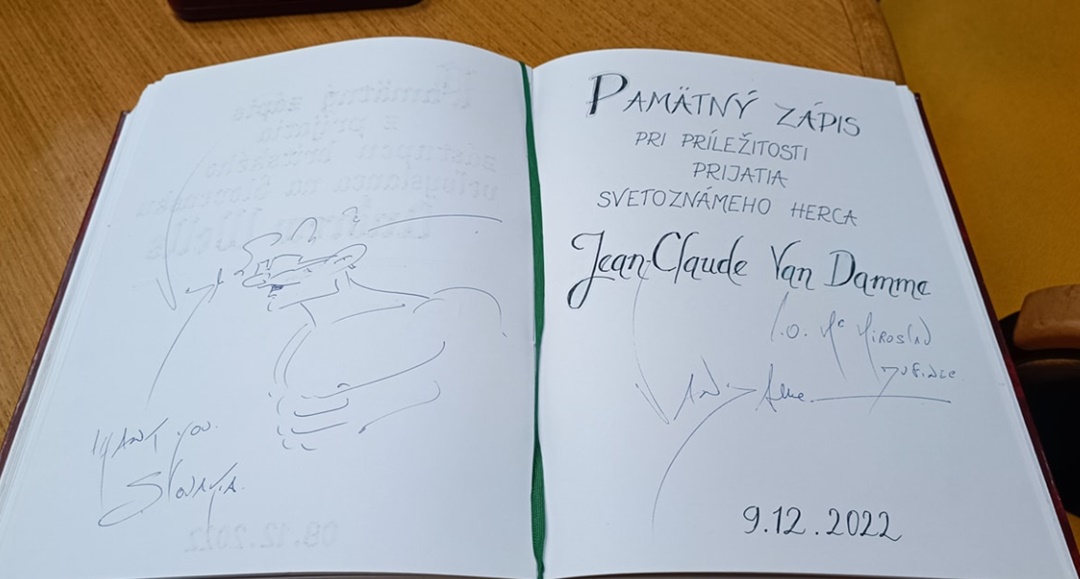 THANK YOU.
SLOVAKIA.
PAMÄTNÝ ZÁPIS
PRI PRÍLEŽITOSTI
PRIJATIA
SVETOZNÁMEHO HERCA
Jean-Claude Van Damme
MIROSLAV
9.12.2022